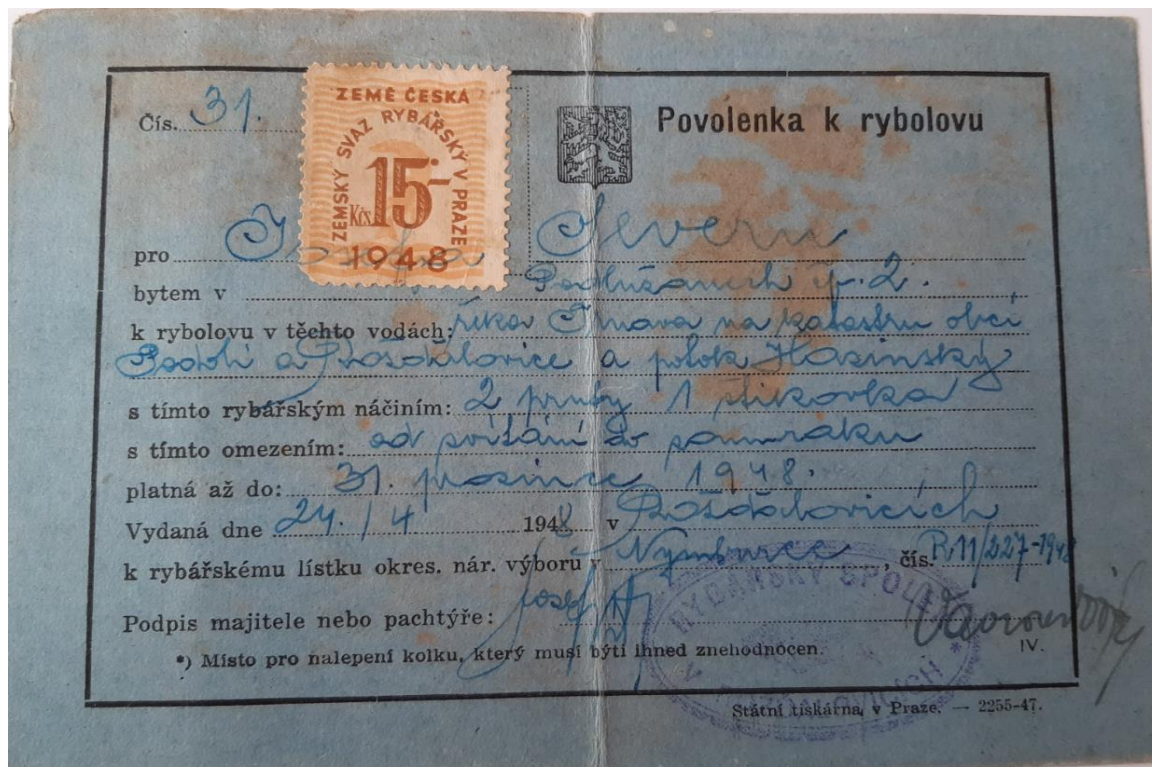 Čís. 31.
ZEMĚ ČESKÁ
ZEMSKÝ SVAZ RYBÁŘSKÝ V PRAZE
Kčs 15·-
1948
Povolenka k rybolovu
pro
bytem v Podlužanech čp. 2.
k rybolovu v těchto vodách: řeka na katastru obcí
Podolí a Rožďalovice a potok Hasinský
s tímto rybářským náčiním: 2 pruty 1 štikovka
s tímto omezením: od svítání do soumraku
platná až do: 31. prosince 1948.
Vydaná dne 24./4 1948 v Rožďalovicích
k rybářskému lístku okres. nár. výboru v Nymburce, čís. R11/227-1948
Podpis majitele nebo pachtýře: Josef
RYBÁŘSKÝ SPOLEK
*) Místo pro nalepení kolku, který musí býti ihned znehodnocen.
IV.
Státní tiskárna, v Praze. — 2255-47.